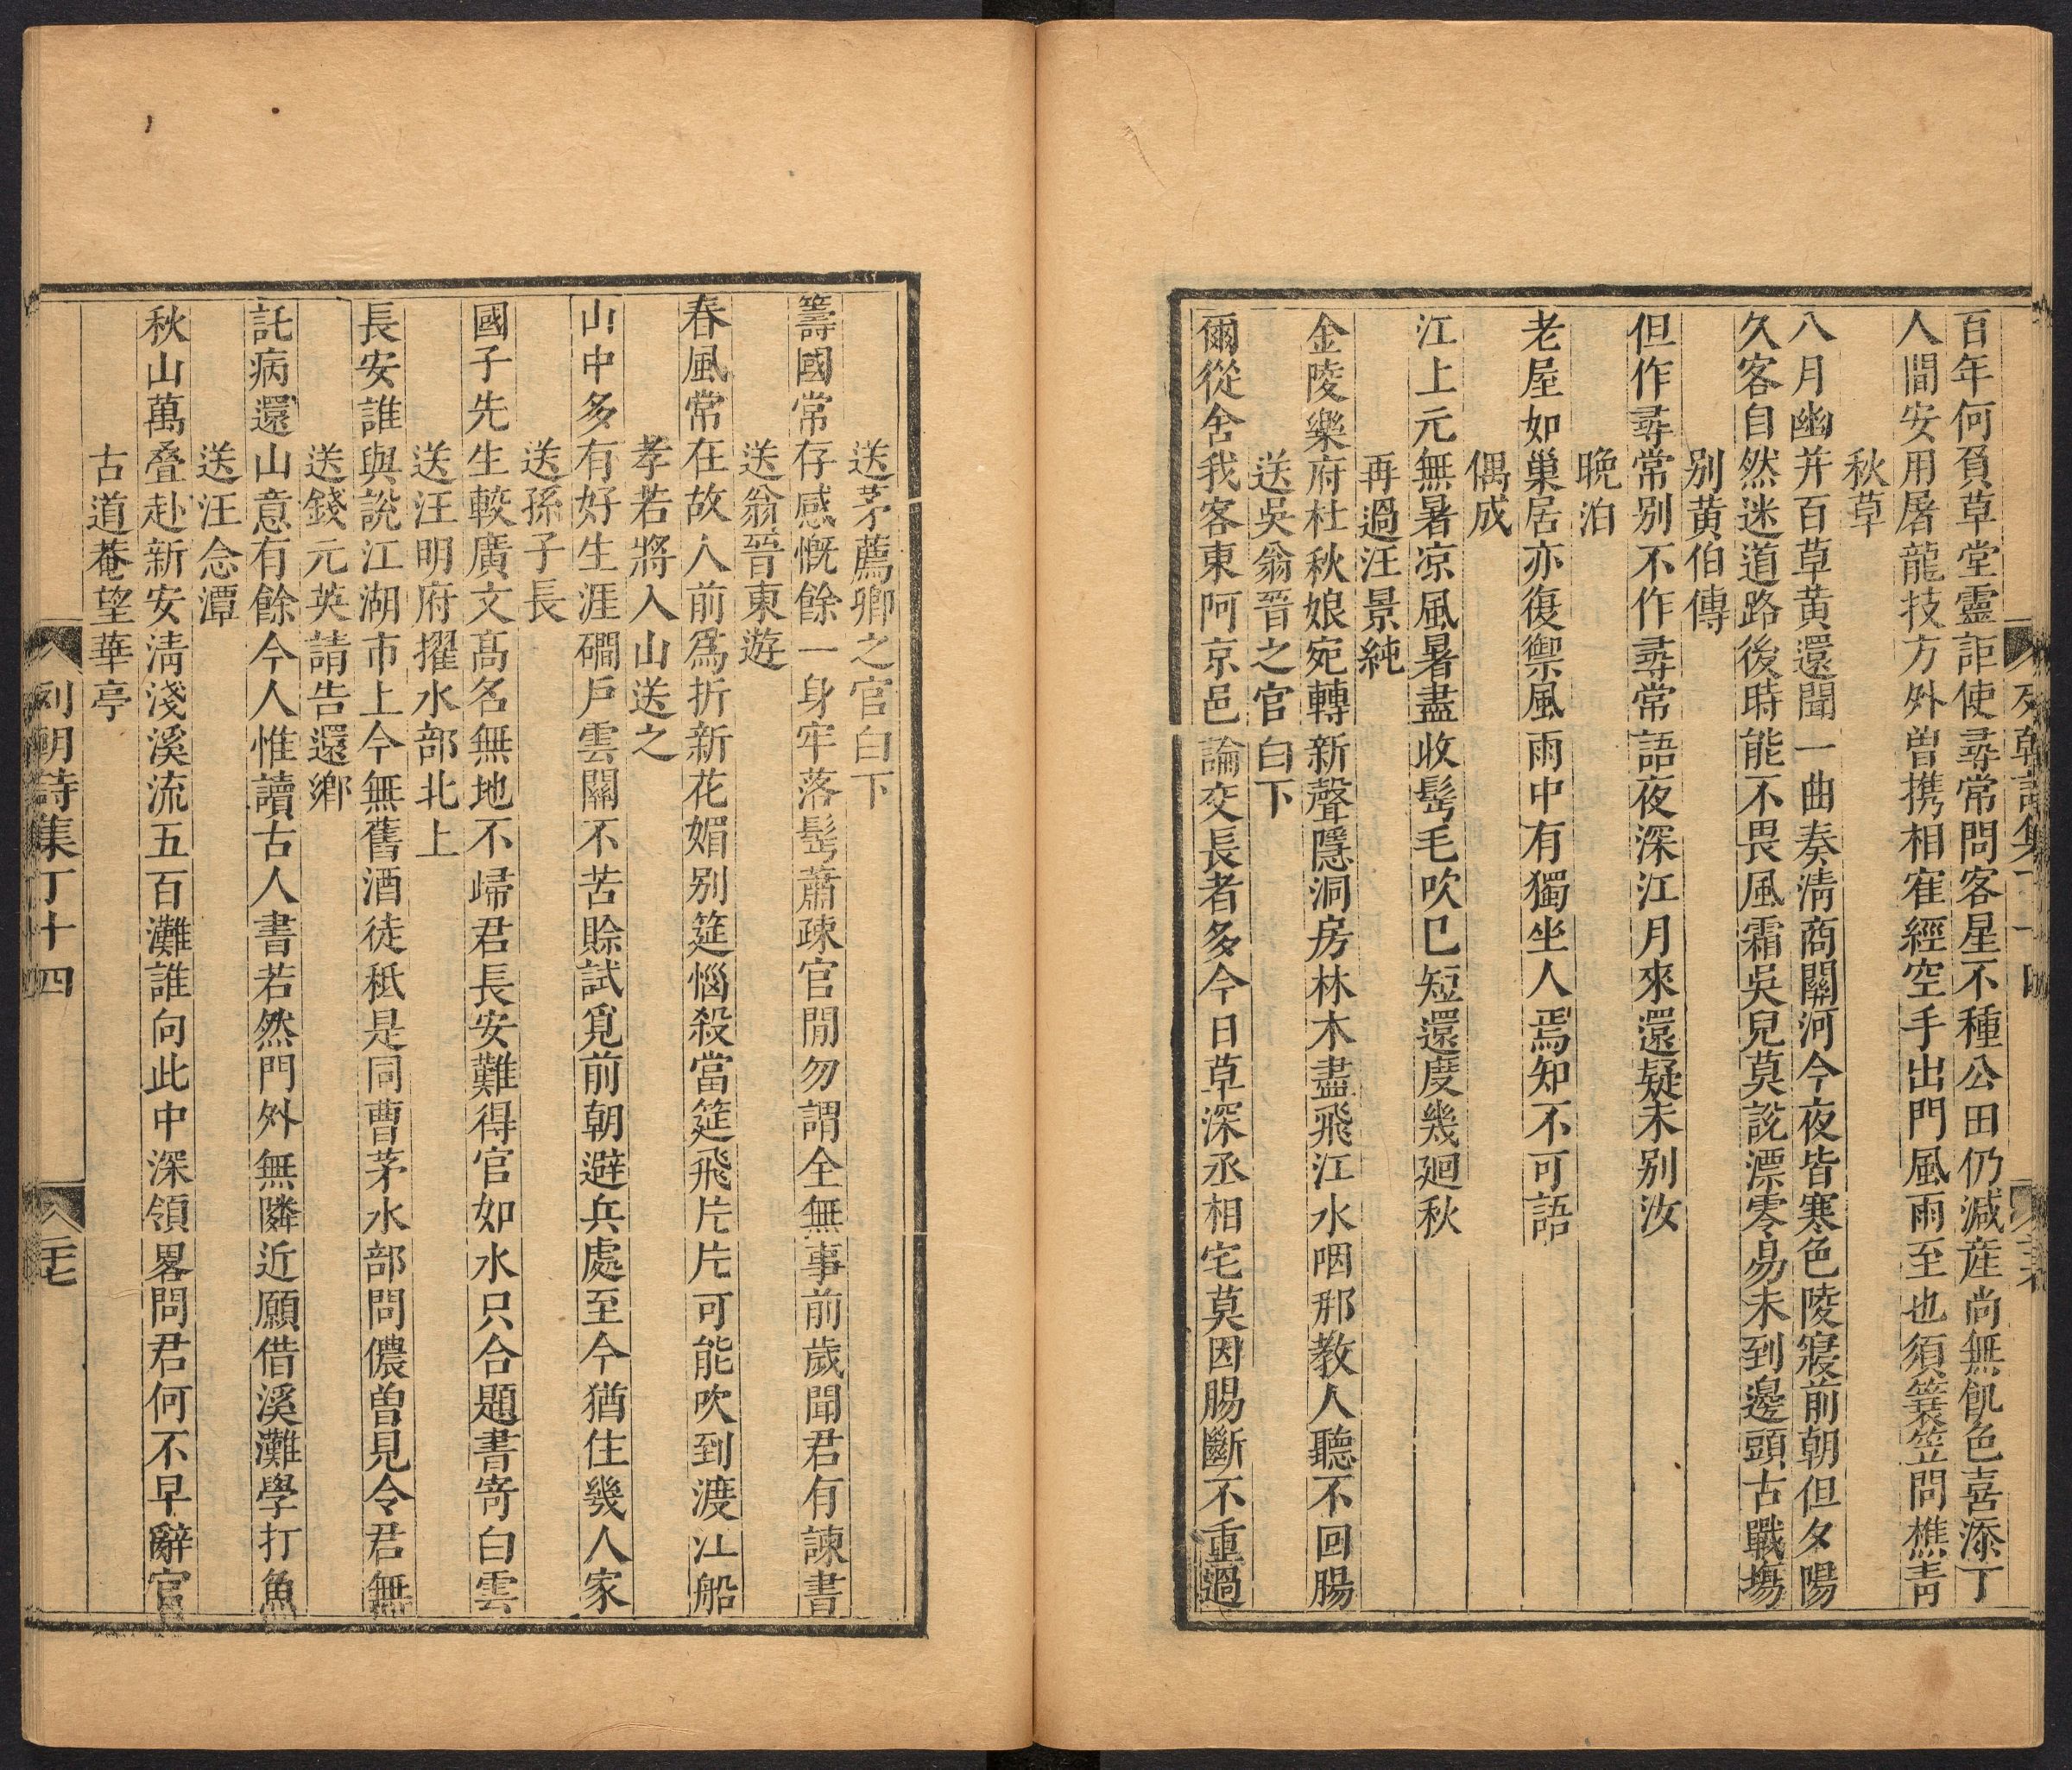 百年何負草堂靈詎使尋常問客星不種公田仍減産尚無飢色喜添丁
人間安用屠龍技方外曽携相寉經空手出門風雨至也須簑笠問樵青
秋草
八月幽并百草黄還聞一曲奏淸商關河今夜皆寒色陵寢前朝但夕陽
久客自然迷道路後時能不畏風霜吳兒莫說漂零易未到邊頭古戰塲
别黄伯傳
但作尋常别不作尋常語夜深江月來還疑未别汝
晩泊
老屋如巢居亦復禦風雨中有獨坐人焉知不可語
偶成
江上元無暑凉風暑盡收髩毛吹已短還度幾廻秋
再過汪景純
金陵樂府杜秋娘宛轉新聲隱洞房林木盡飛江水咽那教人聽不回腸
送吳翁晉之官白下
爾從舍我客東阿京邑論交長者多今日草深丞相宅莫因腸斷不重過
送茅薦卿之官白下
籌國常存感慨餘一身牢落髩蕭疎官閒勿謂全無事前歲聞君有諫書
送翁晉東遊
春風常在故人前爲折新花媚别筵惱殺當筵飛片片可能吹到渡江船
孝若將入山送之
山中多有好生涯磵戶雲關不苦賒試覓前朝避兵處至今猶住幾人家
送孫子長
國子先生較廣文髙名無地不歸君長安難得官如水只合題書寄白雲
送汪明府擢水部北上
長安誰與說江湖市上今無舊酒徒秪是同曹茅水部問儂曽見令君無
送錢元英請告還鄉
託病還山意有餘今人惟讀古人書若然門外無隣近願借溪灘學打魚
送汪念潭
秋山萬叠赴新安淸淺溪流五百灘誰向此中深領畧問君何不早辭官
古道菴望華亭
列朝詩集丁十四
二十七